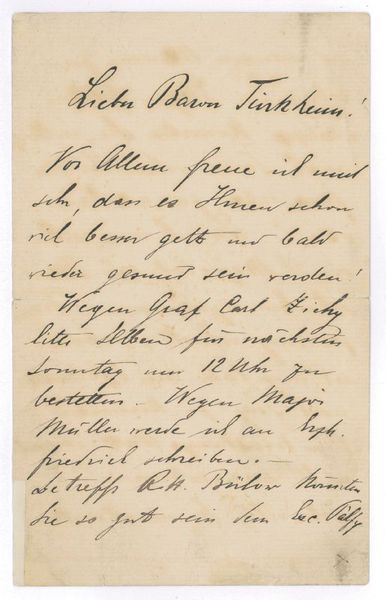 Lieber Baron Türkheim!
Vor Allem freue ich mich
sehr, dass es Ihnen schon
viel besser geht und bald
wieder gesund sein werden!
Wegen Graf Carl Zichy
bitte selben für nächsten
Sonntag um 12 Uhr zu
bestellen. Wegen Major
Müller werde ich an Erzh.
Friedrich schreiben. –
Betreffs R.H. Bülow könnten
Sie so gut sein dem Exc. Pálffy